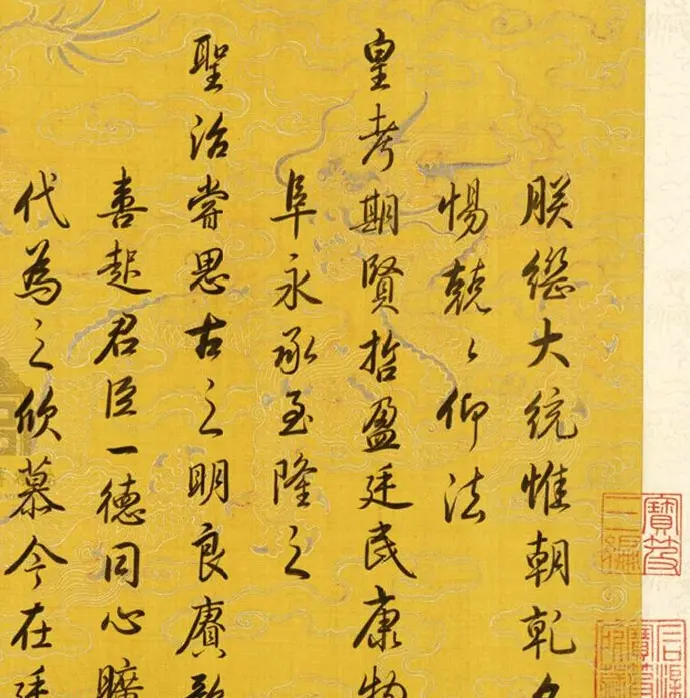 朕繼大統惟朝乾夕
惕兢〻仰法
皇考期賢哲盈廷民康物
阜永承至隆之
聖治嘗思古之明良賡歌
喜起君臣一德同心曠
代為之欣慕今在廷
寶笈三編